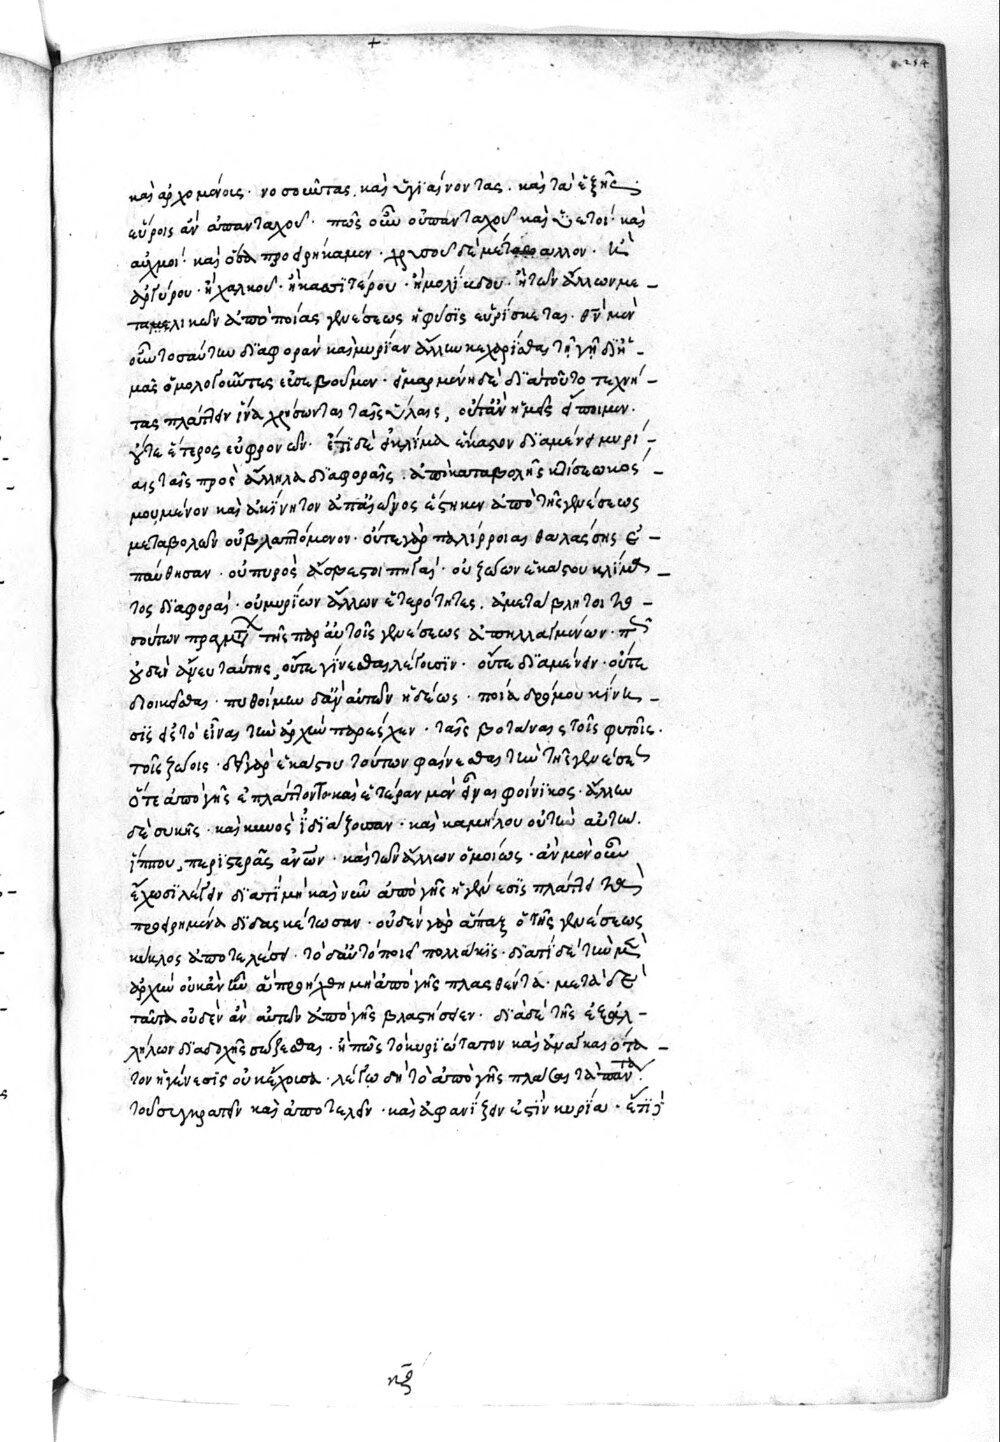 254
καὶ ἀρχομένοις· νοσοῦντας. καὶ ὑγιαίνοντας. καὶ τὰ ἑξῆς
εὕροις ἂν ἁπανταχοῦ· πῶς οὖν οὐ πανταχοῦ καὶ ὑετοὶ· καὶ
αὐχμοί· καὶ ὅσα προειρήκαμεν· χρυσοῦ δὲ μέταλλον· καὶ
ἀργύρου· ἢ χαλκοῦ· ἢ κασσιτέρου· ἢ μολίβδου· ἢ τῶν ἄλλων με –
ταλλικῶν ἀπὸ ποίας γενέσεως ἡ φύσις εὑρίσκεται· θεὸν μὲν
οὖν τοσαύτων διαφορὰν καὶ μυρίαν ἄλλων κεχωρῆσθαι τῇ γῇ δι' ἡ –
μᾶς ὁμολογοῦντες εὐσεβοῦμεν· εἱμαρμένη δὲ διὰ τοῦτο τεχνί –
τας πλάττειν ἵνα χρήσωνται ταῖς ὕλαις, οὔτ' ἂν ἡμεῖς εἴποιμεν·
οὔτε ἕτερος εὐφρονῶν· ἔτι δὲ ἓν κλίμα ἕκαστον διαμένει μυρί –
αις ταῖς πρὸς ἄλληλα διαφοραῖς. ἀπὸ καταβολῆς κτίσεως κοσ –
μουμένον καὶ ἀκίνητον ἀπ' αἰῶνος ἕστηκεν ἀπὸ τῆς γενέσεως
μεταβολῶν οὐ βλαπτόμενον· οὔτε γὰρ παλίρροιαι θαλάσσης ἐ –
παύθησαν· οὐ πυρὸς ἄσβεστοι πηγαί· οὐ ζώων ἑκάστου κλίμα –
τος διαφοραί· οὐ μυρίων ἄλλων ἑτερότητες. ἀμετάβλητοι το –
σούτων πραγμάτων τῆς παρ' αὐτοῖς γενέσεως ἀπηλλαγμένων·
οὐδὲν ἄνευ ταύτης, οὔτε γίνεσθαι λέγουσιν· οὔτε διαμένειν· οὔτε
διοικεῖσθαι· πυθοίμην δ' ἂν αὐτῶν ἡδέως· ποία δρόμου κίνη –
σις εἰς τὸ εἶναι τὴν ἀρχὴν παρέσχεν· ταῖς βοτάναις τοῖς φυτοῖς·
τοῖς ζώοις· δεῖ γὰρ ἑκάστου τούτων φαίνεσθαι τὴν τῆς γενέσεως
ὅτε ἀπὸ γῆς ἐπλάττοντο καὶ ἑτέραν μὲν εἶναι φοίνικος· ἄλλην
δὲ συκῆς· καὶ κυνὸς ἰδιάζουσαν· καὶ καμήλου οὐ τὴν αὐτὴν·
ἵππου, περιστερᾶς ἀνθρώπων· καὶ τῶν ἄλλων ὁμοίως· ἂν μὲν οὖν
ἔχωσι λέγειν διατί μὴ καὶ νῦν ἀπὸ γῆς ἡ γένεσις πλάττει τὰ
προειρημένα διδασκέτωσαν· οὐδὲν γὰρ ἅπαξ ὁ τῆς γενέσεως
κύκλος ἀποτελέσει· τὸ δ' αὐτὸ ποιεῖ πολλάκις· διατί δὲ τὴν μὲν
ἀρχὴν οὐκ ἂν ἦν εἰ προήχθη μὴ ἀπὸ γῆς πλασθέντα· μετὰ δὲ
ταῦτα οὐδὲν ἂν αὐτῶν ἀπὸ γῆς βλαστήσειεν· διὰ δὲ τῆς ἐξ ἀλ –
λήλων διαδοχῆς σώζεσθαι· ἢ πῶς τὸ κυριώτατον καὶ ἀναγκαιότα –
τον ἡ γένεσις οὐκ ἔχουσα· λέγω δὴ τὸ ἀπὸ γῆς πλάσαι τὰ πάντα·
τοῦ συγκρατεῖν καὶ ἀποτελεῖν· καὶ ἀφανίζειν ἐστὶν κυρία· ἔτι